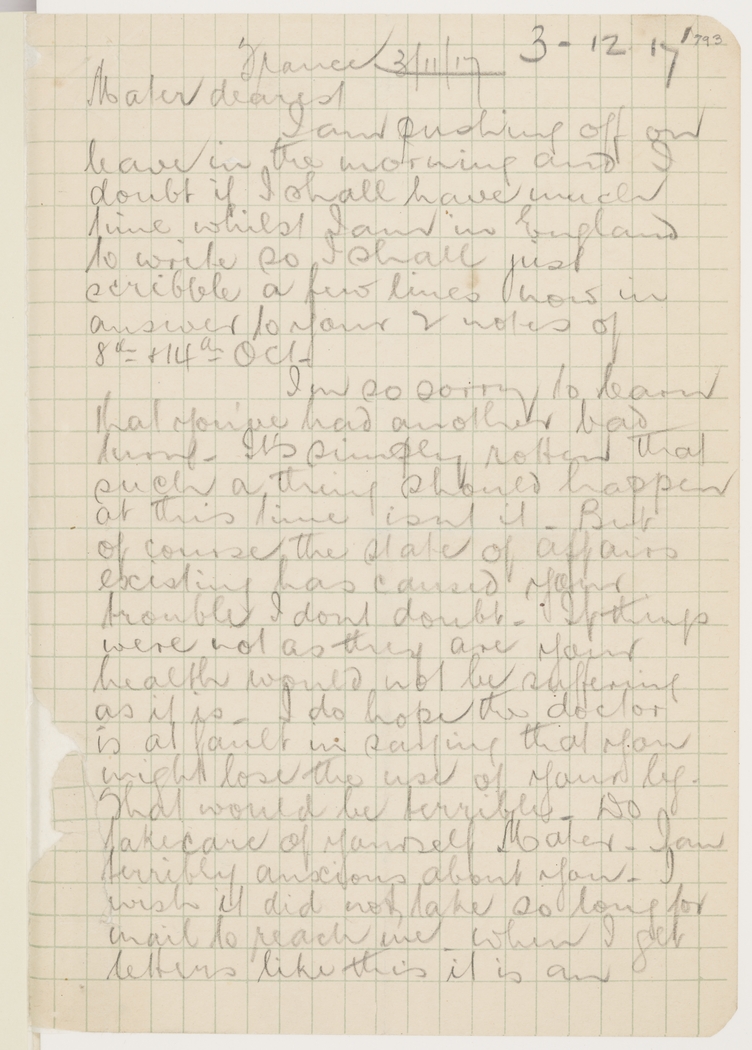 3-12-17
793
France 3/11/17
Mater dearest
I am pushing off on
leave in the morning and I
doubt if I shall have much
time whilst I am in England
to write so I shall just
scribble a few lines now in
answer to your 2 notes of
8th & 14th Oct-
I'm so sorry to learn
that you've had another bad
turn- It's simply rotten that
such a thing should happen
at this time isnt it- But
of course the state of affairs
existing has caused your
trouble I dont doubt- If things
were not as they are your
health would not be suffering
as it is- I do hope the doctor
is at fault in saying that you
might lose the use of your leg-
That would be terrible- Do
take care of yourself Mater- I am
terribly anxious about you- I
wish it did not take so long for
mail to reach me- when I get
letters like this it is an